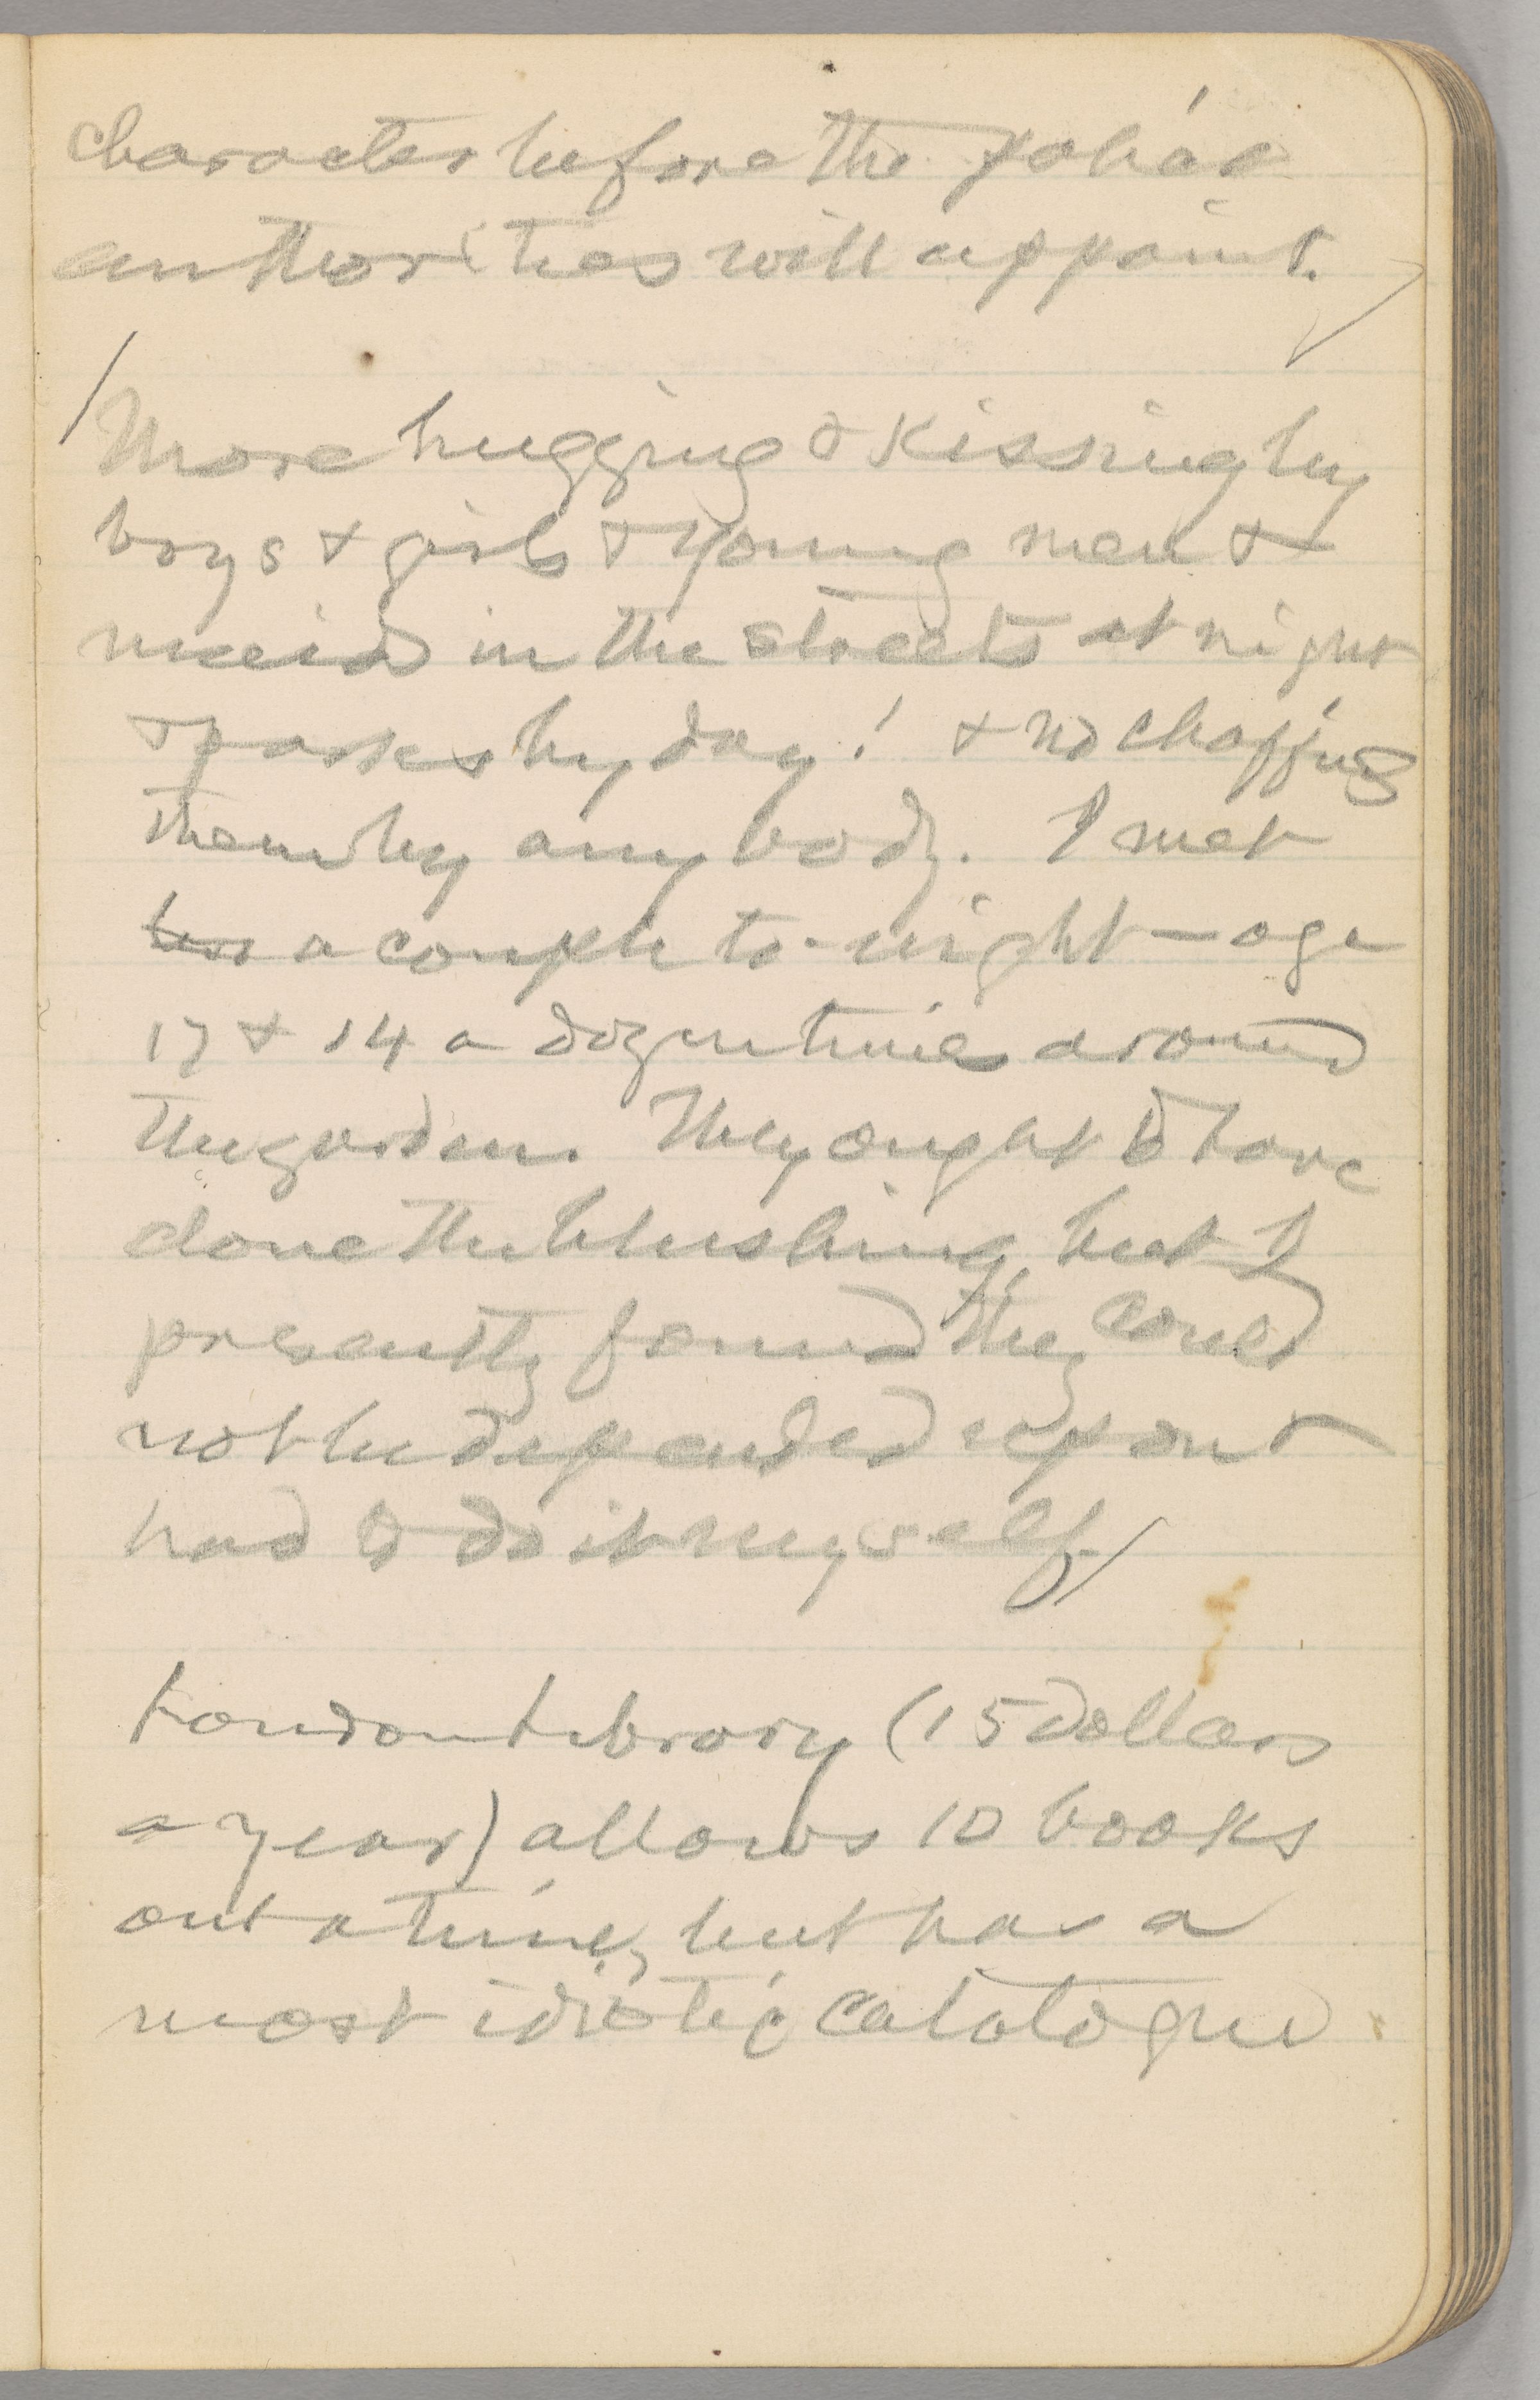 character before the police
authorities will appoint.
More hugging & kissing by
boys & girls & young men &
maids in the streets at night
& parks by day! & no chaffing
them by any body. I met
a couple to-night — age
17 & 14 a dozen times around
the garden. They ought to have
done the blushing, but I
presently found they could
not be depended upon &
had to do it myself.
London Library (15 dollars
a year) allows 10 books
out a time, but has a
most idiotic catalogue